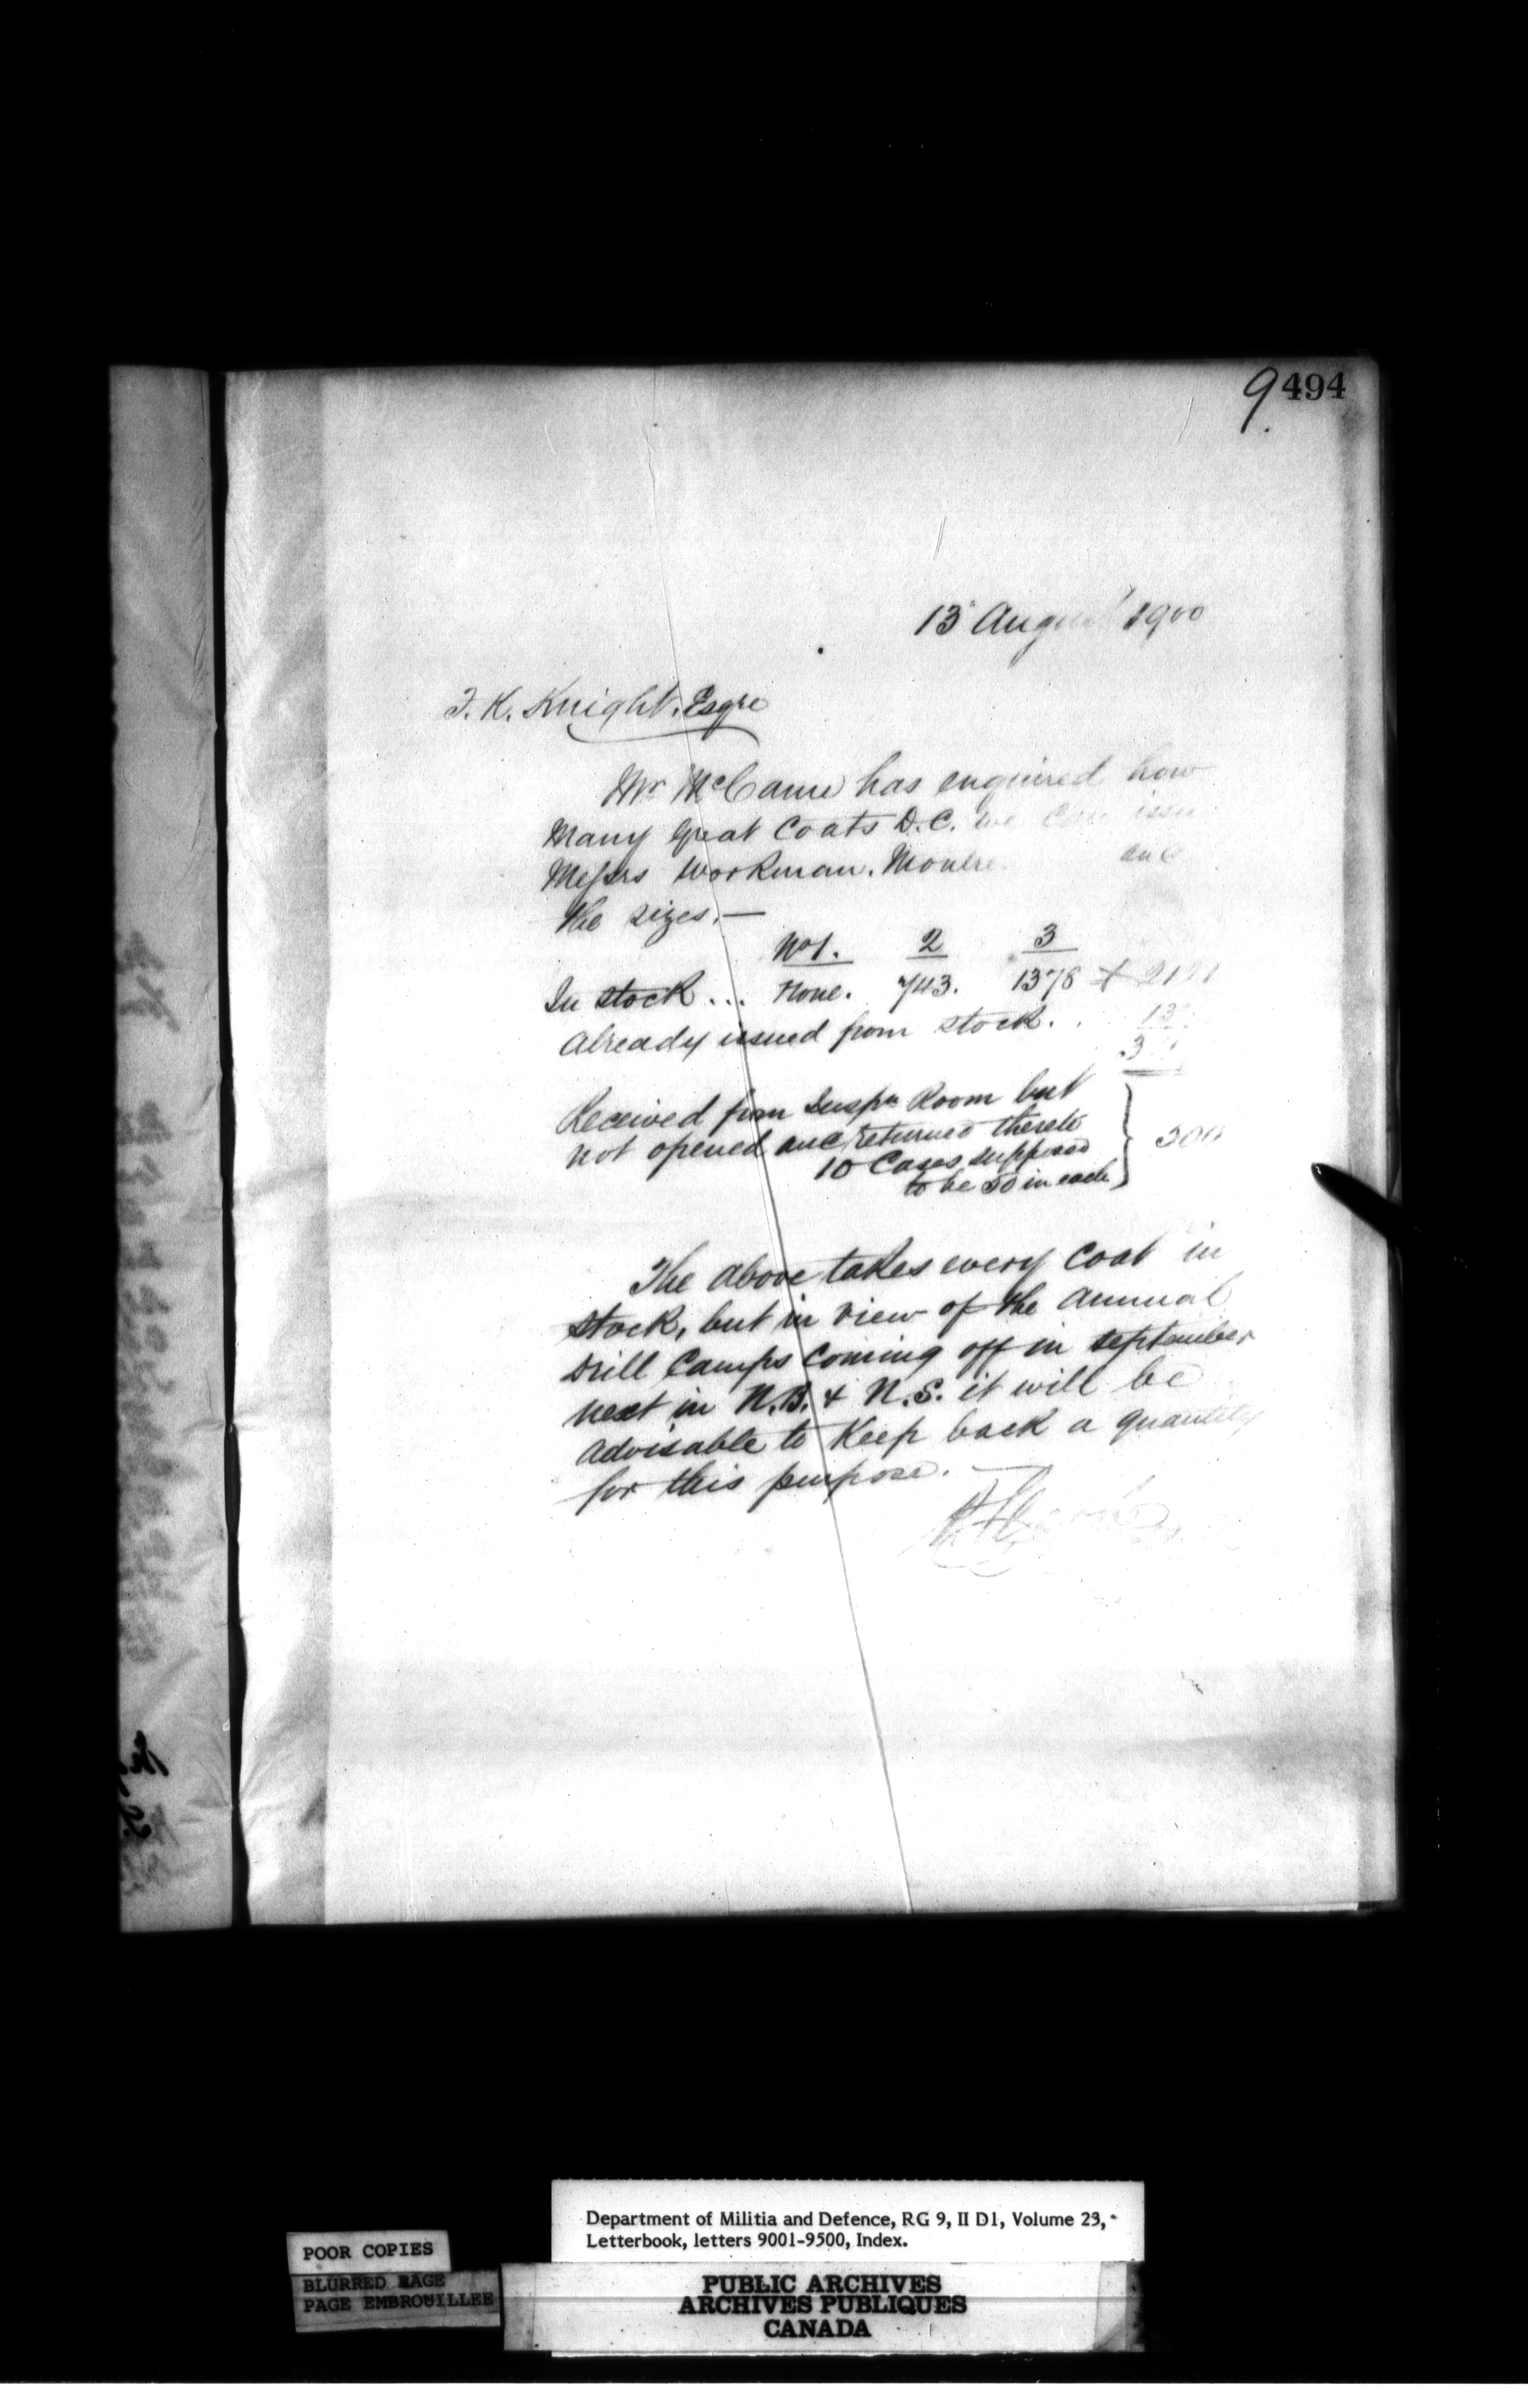 9494
13 August 1900
F. K. Knight. Esqre
Mr McCann has enquired how
many Great Coats D.C. we can issue
Messrs Workman. Montre and
the sizes.—
No 1. 2 3
In stock... None. 743. 1378
Already issued from stock. .
Received from Inspn Room but
not opened and returned thereto
10 Cases supposed
to be 50 in each } 500
The above takes every Coat in
stock, but in view of the annual
Drill Camps coming off in september
next in N.B. & N.S. it will be
advisable to Keep back a quantity
for this purpose.
Department of Militia and Defence, RG 9, II D1, Volume 23,
Letterbook, letters 9001-9500, Index.
POOR COPIES
BLURRED PAGE
PAGE EMBROUILLEE
PUBLIC ARCHIVES
ARCHIVES PUBLIQUES
CANADA